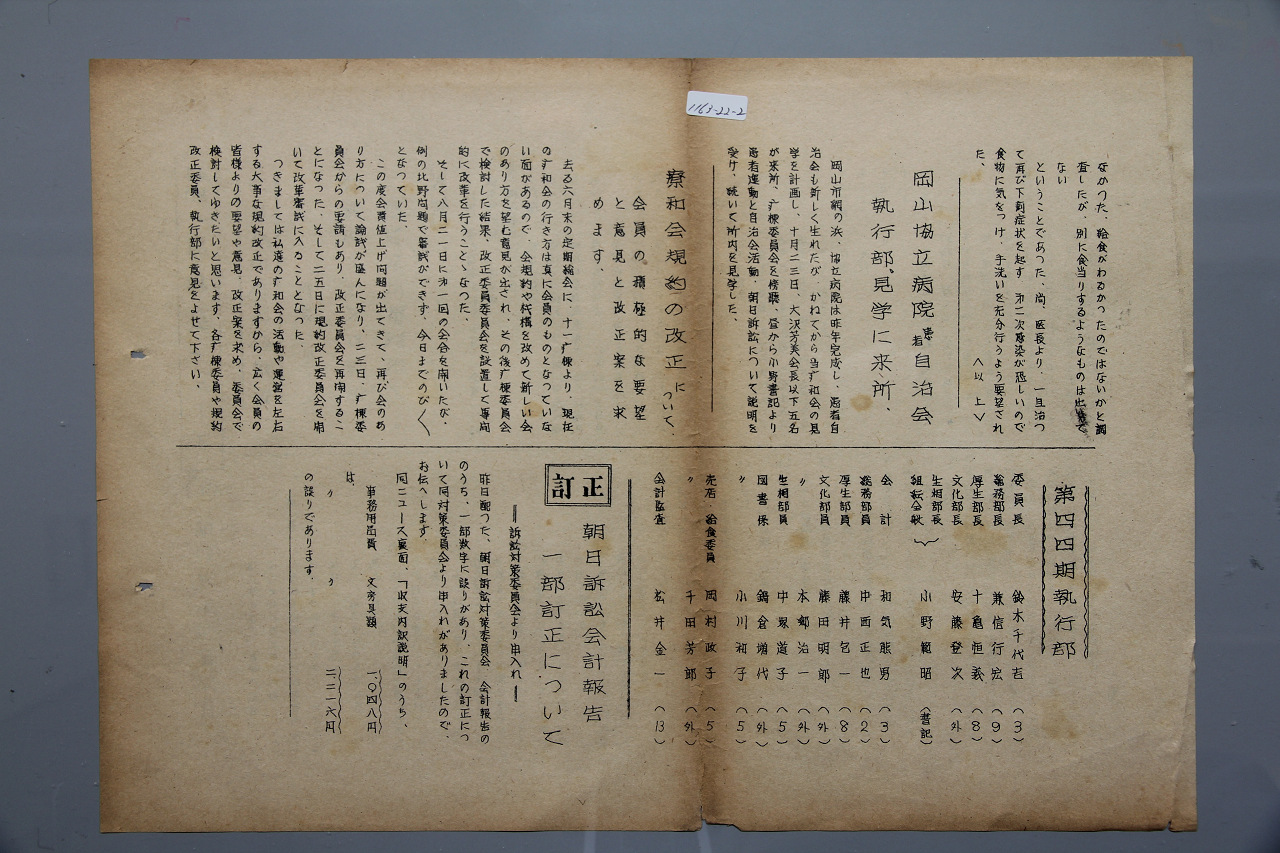 1163-22-2
なかつた、給食がわるかつたのではないかと調
査したが、別に食当りするようなものは出
ない
ということであつた、尚、医長より、一旦治つ
て再び下痢症状を起す、第二次感染が恐しいので
食物に気をつけ、手洗いを充分行うよう要望され
た、
〈以上〉
岡山協立病院患者自治会
執行部、見学に来所、
岡山市網の浜、協立病院は昨年完成し、患者自
治会も新しく生れたが、かねてから当和会の見
学を計画し、十月二三日、大沢芳美会長以下五名
が来所、病棟委員会を傍聴、昼から小野書記より
患者運動と自治会活動、朝日訴訟について説明を
受け、続いて所内を見学した、
寮和会規約の改正について、
会員の積極的な要望
と意見と改正案を求
めます、
去る六月末の定期総会に、十一病棟より、現在
の和会の行き方は真に会員のものとなつていな
い面があるので、会規約や機構を改めて新しい会
のあり方を望む意見が出され、その後病棟委員会
で検討した結果、改正委員委員会を設置して専問
的に改革を行うことゝなつた、
そして八月二一日に第一回の会合を開いたが、
例の比野問題で審議ができず、今日までのび〱
となつていた、
この度会費値上げ問題が出てきて、再び会のあ
り方について論議が盛んになり、二三日、病棟委
員会からの要請もあり、改正委員会を再開するこ
とになつた、そして二五日に規約改正委員会を開
いて改革審議に入ることとなつた、
つきましては私達の和会の活動や運営を左右
する大事な規約改正でありますから、広く会員の
皆様よりの要望や意見、改正案を求め、委員会で
検討してゆきたいと思います、各病棟委員や規約
改正委員、執行部に意見をよせて下さい、
第四四期執行部
委員長 鈴木千代吉 (3)
総務部長 兼信行宏 (9)
厚生部長 十亀恒義 (8)
文化部長 安藤登次 (外)
生相部長
組転会秋 小野範昭 (書記)
会計 和気熊男 (3)
総務部員 中西正也 (2)
厚生部員 藤井包一 (8)
文化部員 藤田明郎 (外)
〃 本郷治一 (外)
生相部員 中塚道子 (5)
図書係 鍋倉増代 (外)
〃 小川和子 (5)
売店・給食委員 岡村政子 (5)
〃 千田芳郎 (外)
会計監査 松井金一 (13)
訂正
朝日訴訟会計報告
一部訂正について
═訴訟対策委員会より申入れ═
昨日配つた、朝日訴訟対策委員会、会計報告の
のうち、一部数字に誤りがあり、これの訂正につ
いて同対策委員会より申入れがありましたので、
お伝へします、
同ニュース裏面、「収支内訳説明」のうち、
事務用品費 文房具類 一、〇四八円
は、
〃 〃 二、二一六円
の誤りであります、